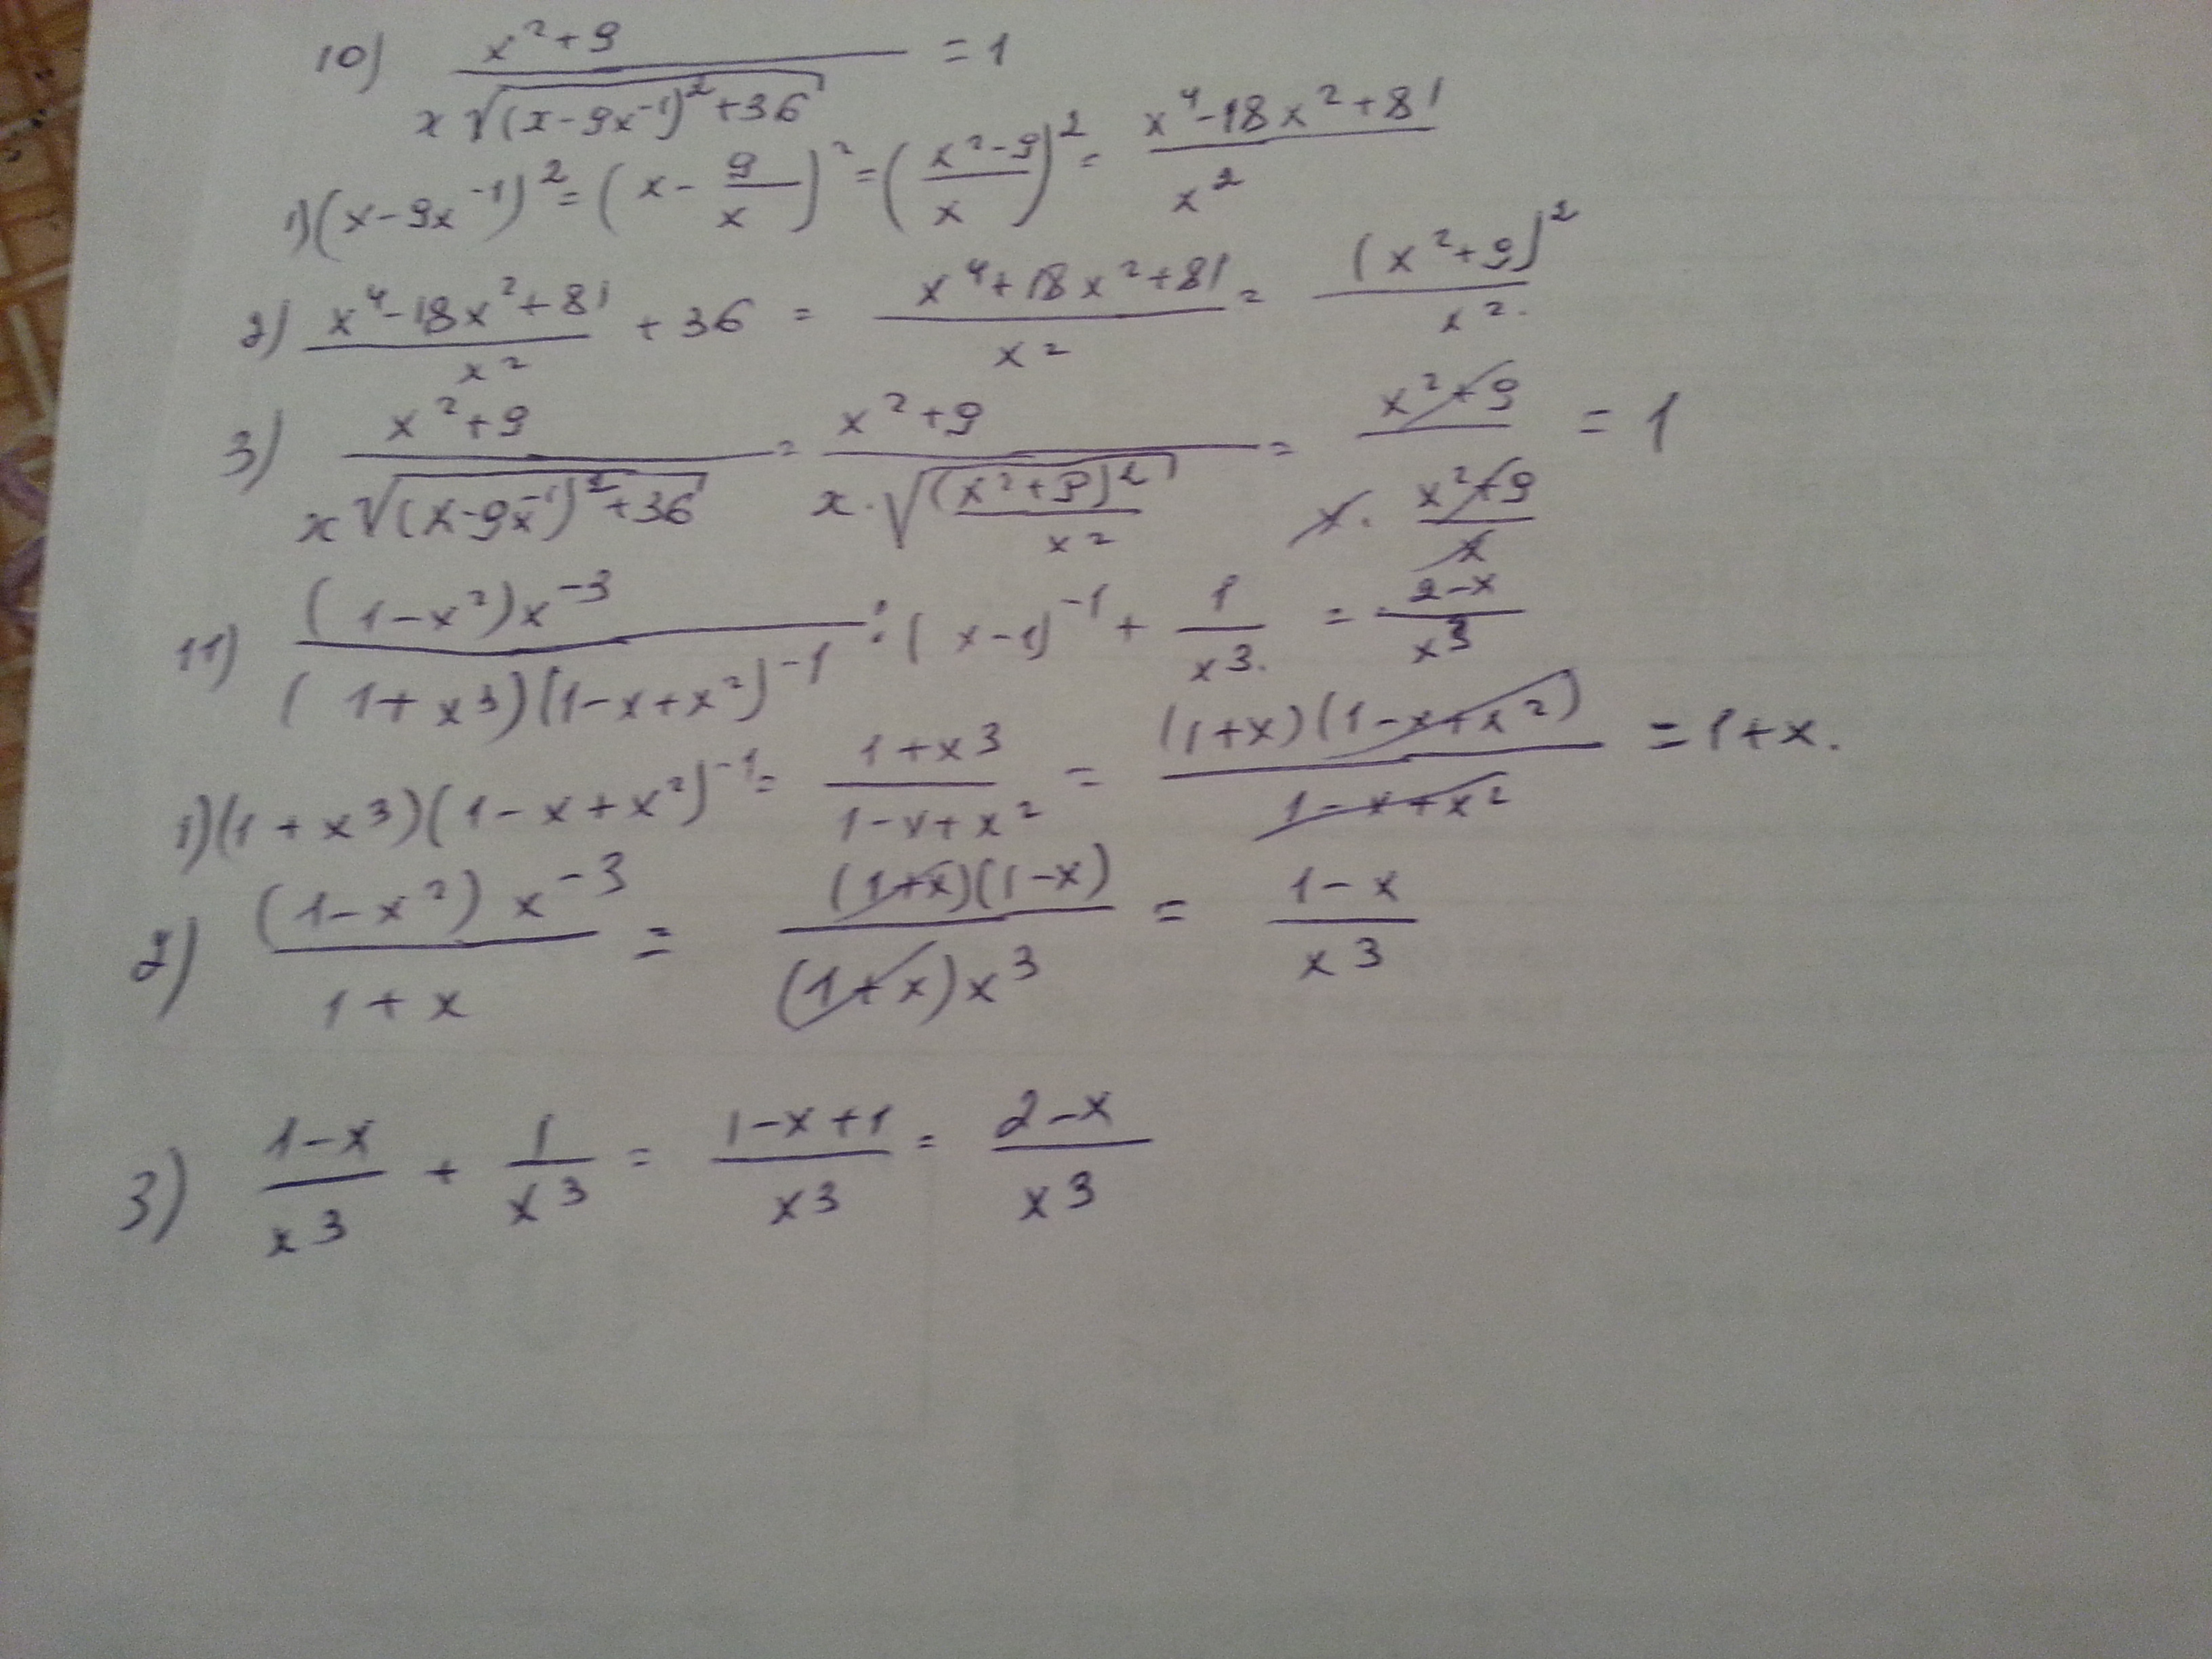 10) (x²+9)/(x√((x-9x⁻¹)²+36)) = 1
1) (x-9x⁻¹)² = (x - 9/x)² = ((x²-9)/x)² = (x⁴-18x²+81)/x²
2) (x⁴-18x²+81)/x² + 36 = (x⁴+18x²+81)/x² = (x²+9)²/x².
3) (x²+9)/(x√((x-9x⁻¹)²+36)) = (x²+9)/(x·√((x²+9)²/x²)) = (x²+9)/(x·(x²+9)/x) = 1
11) ((1-x²)x⁻³)/((1+x³)(1-x+x²)⁻¹) : (x-1)⁻¹ + 1/x³. = (2-x)/x³
1) (1+x³)(1-x+x²)⁻¹ = (1+x³)/(1-x+x²) = ((1+x)(1-x+x²))/(1-x+x²) = 1+x.
2) ((1-x²)x⁻³)/(1+x) = ((1+x)(1-x))/((1+x)x³) = (1-x)/x³
3) (1-x)/x³ + 1/x³ = (1-x+1)/x³ = (2-x)/x³